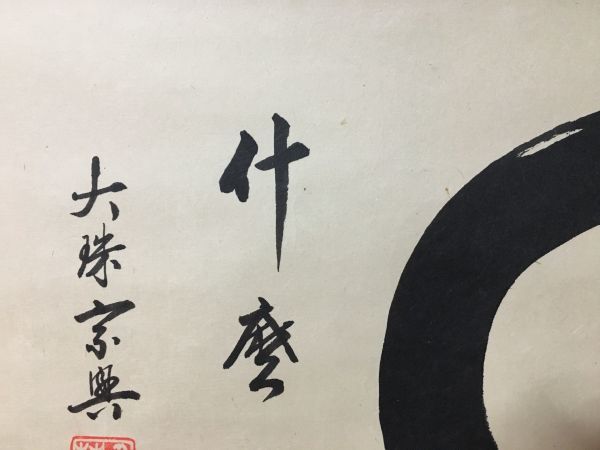 什麼
大珠宗興